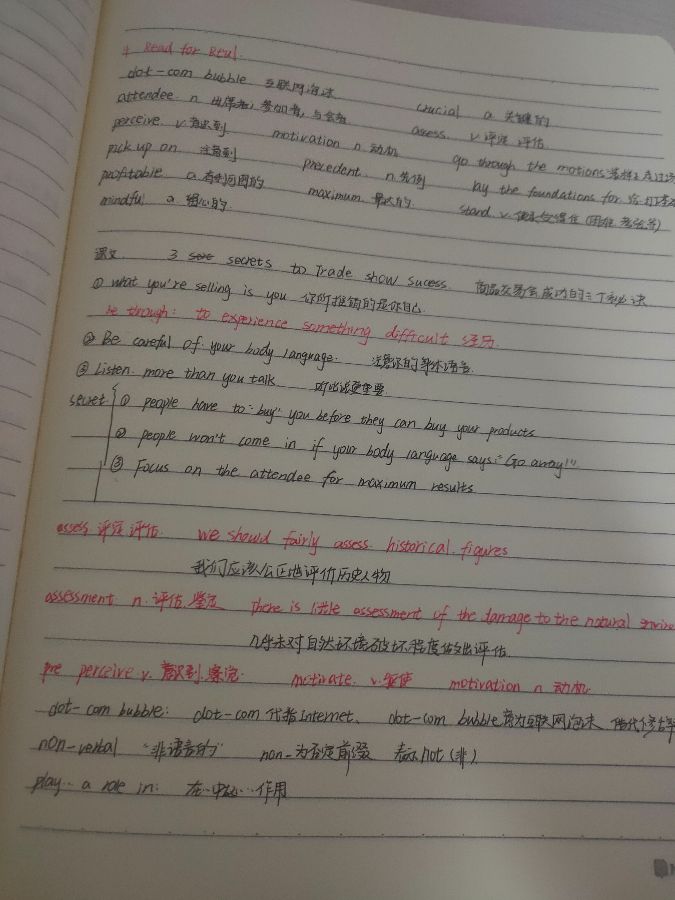 Read for Real.
dot-com bubble 互联网泡沫
attendee n 出席者, 参加者, 与会者 crucial a 关键的
perceive v. 意识到 motivation n 动机 assess. v 评定 评估.
pick up on 注意到 precedent. n. 先例 go through the motions
profitable a. 有利可图的 maximum. 最大的 lay the foundations for 给 打基础
mindful a 细心的. stand. v.
课文 3 secrets to Trade show sucess. 商品交易会成功的三个秘诀
① what you're selling is you 你所推销的是你自己
be though: to experience something difficult 经历
② Be careful of your body language. 注意你的身体语言
③ Listen more than you talk 听比说更重要
secret ① people have to "buy" you before they can buy your products
② people won't come in if your body language says: "Go away!"
③ Focus on the attendee for maximum results
assess 评定 评估. we should fairly assess historical figures
我们应该公正地评价历史人物
assessment n. 评估. 鉴定 there is little assessment of the damage to the natural
几乎未对自然环境破坏程度做出评估.
pre perceive v. 意识到. 察觉. motivate. v. 驱使 motivation n 动机
dot-com bubble: dot-com 代指Internet、 dot-com bubble 意为互联网泡沫
non-verbal "非语言的" non- 为否定前缀 表示 not (非)
play... a role in: 在...中起...作用